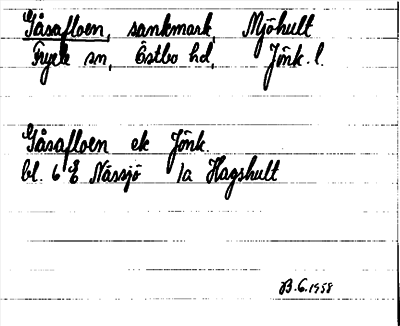 Gåsafloen, sankmark, Mjöhult
Fryele sn, Östbo hd, Jönk. l.
Gåsafloen ek Jönk.
bl. 6 E Nässjö 1a Hagshult
B.G. 1958